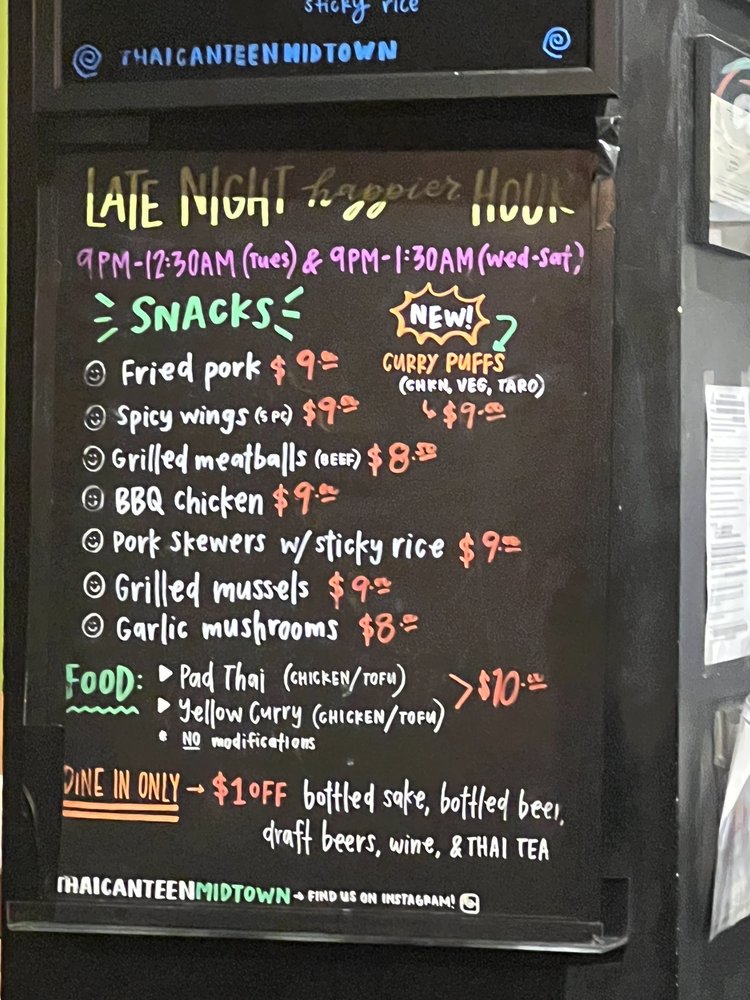 sticky rice
@ THAICANTEENMIDTOWN @
LATE NIGHT happier HOUR
9PM-12:30AM (Tues) & 9PM-1:30AM (Wed-Sat)
SNACKS
NEW!
CURRY PUFFS
(CHKN, VEG, TARO)
$9.00
Fried pork $9.00
Spicy wings (5 PC) $9.00
Grilled meatballs (BEEF) $8.50
BBQ Chicken $9.00
Pork Skewers w/sticky rice $9.00
Grilled mussels $9.00
Garlic mushrooms $8.00
FOOD: Pad Thai (CHICKEN/TOFU)
Yellow Curry (CHICKEN/TOFU)
> $10.00
* NO modifications
DINE IN ONLY → $1 OFF bottled sake, bottled beer,
draft beers, wine, & THAI TEA
THAICANTEENMIDTOWN → FIND US ON INSTAGRAM!